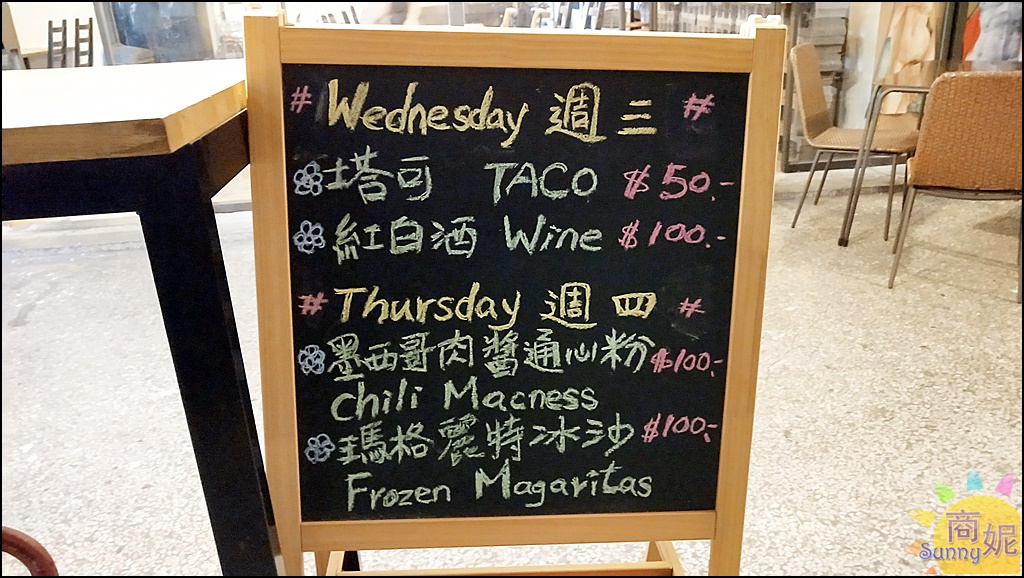 # Wednesday 週三 #
塔可 TACO $50.-
紅白酒 Wine $100.-
# Thursday 週四 #
墨西哥肉醬通心粉 $100.-
Chili Macness
瑪格麗特冰沙 $100.-
Frozen Magaritas
商妮
Sunny